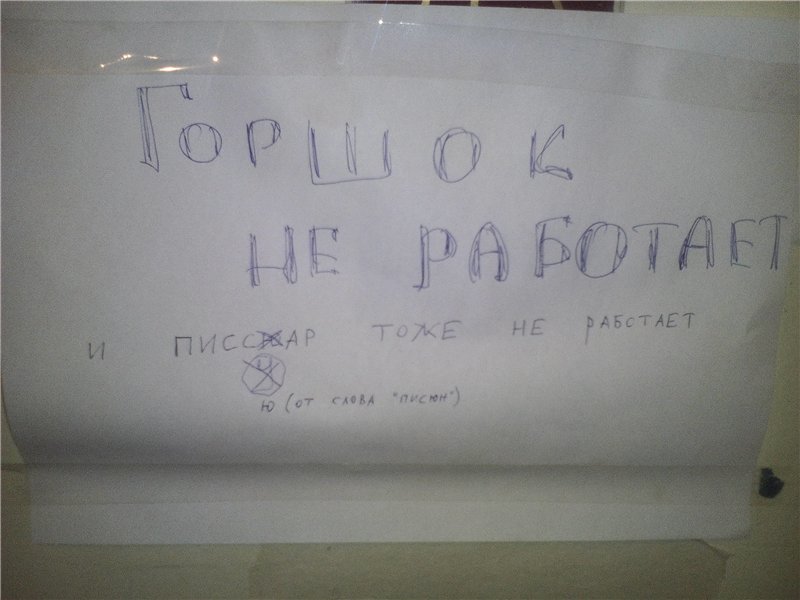 Горшок
НЕ РАБОТАЕТ
И ПИССЖАР ТОЖЕ НЕ РАБОТАЕТ
Ю (ОТ СЛОВА "ПИСЮН")